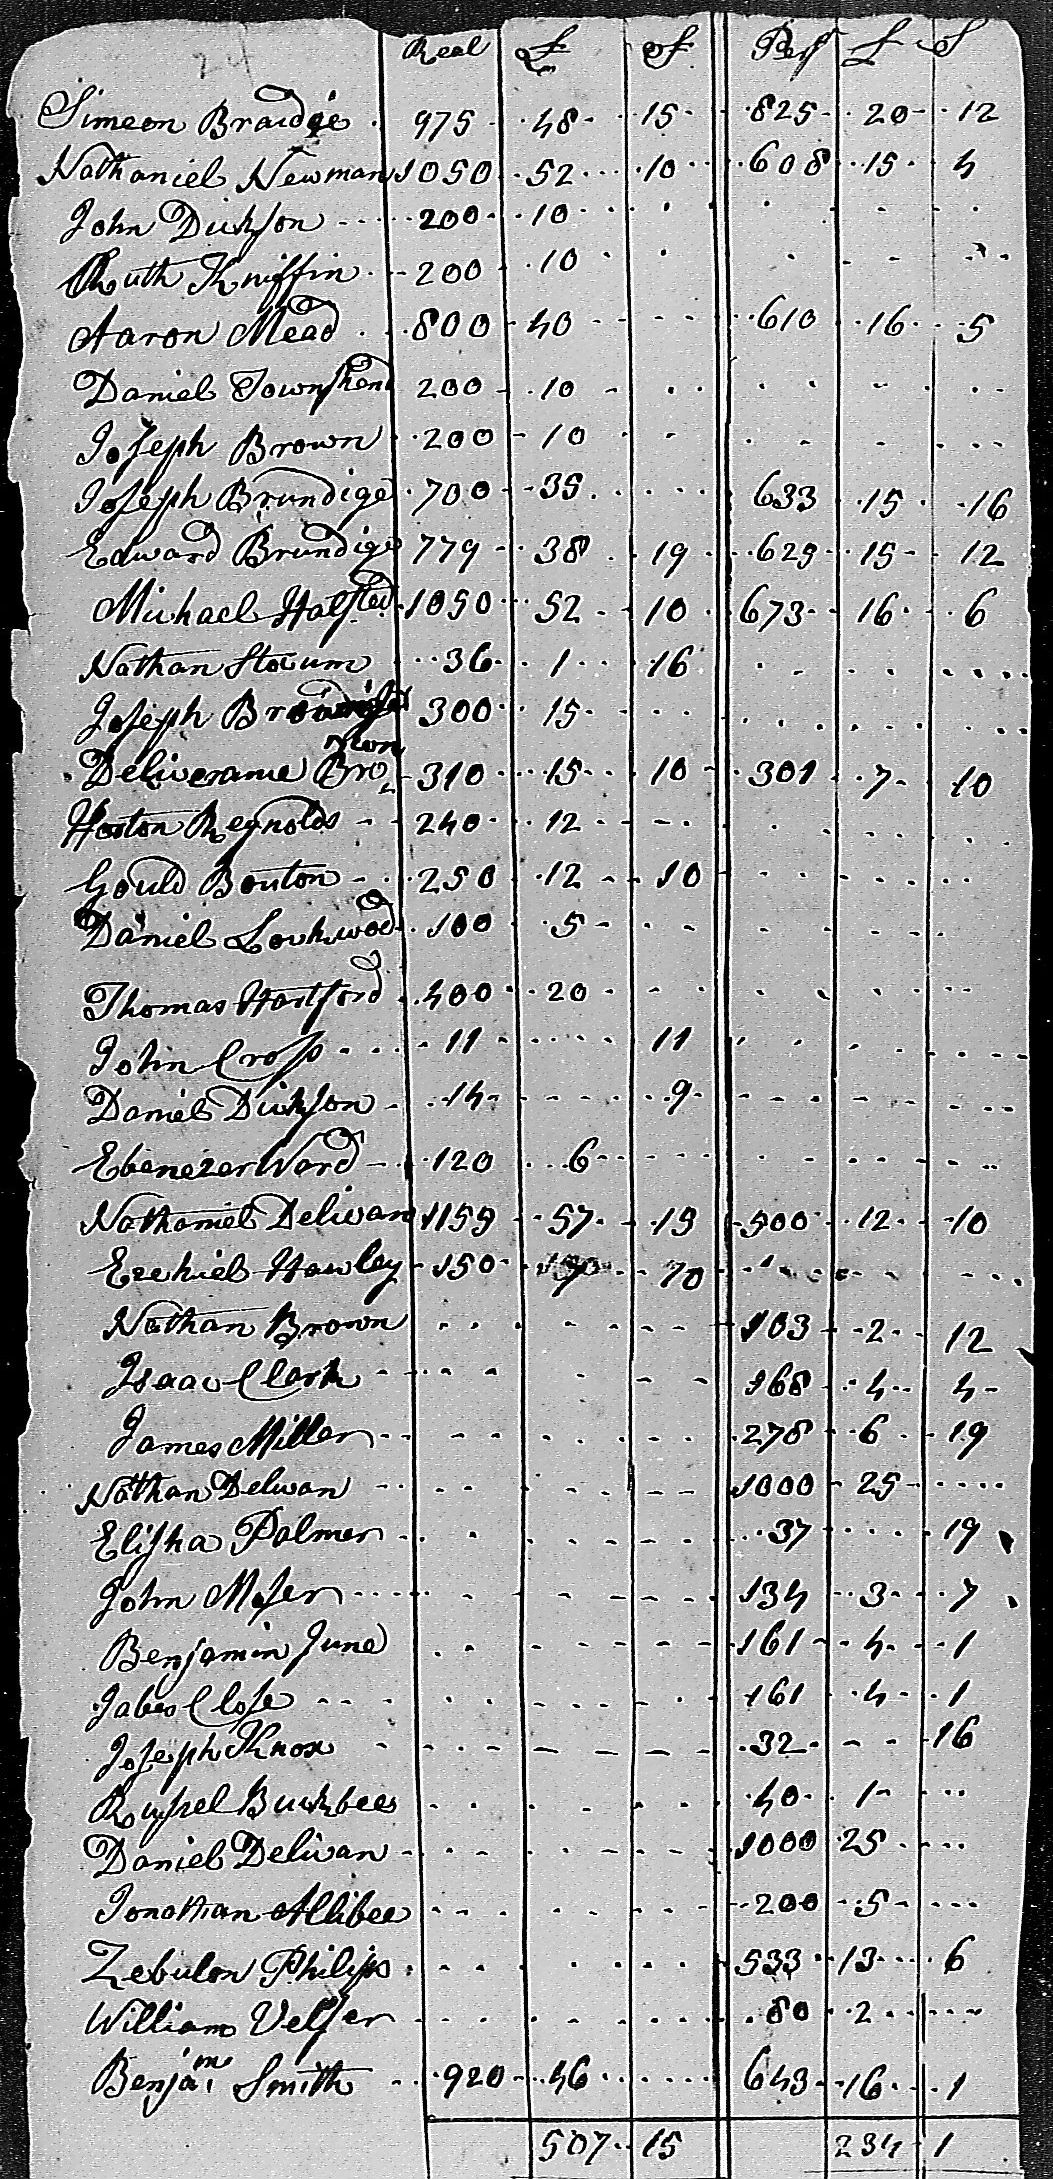 24
Real £ S Pers £ S
Simeon Braidge 975 48 15 825 20 12
Nathaniel Newman 1050 52 10 608 15 4
John Dickson 200 10
Ruth Kniffin 200 10
Aaron Mead 800 40 610 16 5
Daniel Townshend 200 10
Joseph Brown 200 10
Joseph Brundige 700 35 633 15 16
Edward Brundige 779 38 19 625 15 12
Michael Halsted 1050 52 10 673 16 6
Nathan Slocum 36 1 16
Joseph 300 15
Deliverance Brown 310 15 10 301 7 10
Horton Reynolds 240 12
Gould Bouton 250 12 10
Daniel Lockwod 100 5
Thomas Hartford 400 20
John Cross 11 11
Daniel Dickson 14 9
Ebenezer Ward 120 6
Nathaniel Delivan 1159 57 19 500 12 10
Ezekiel Hawley 150 7 10
Nathan Brown 103 2 12
Isaac Clark 168 4 4
James Miller 278 6 19
Nathan Delivan 1000 25
Elisha Palmer 37 19
John Moser 134 3 7
Benjamin June 161 4 1
Jabes Close 161 4 1
Joseph Knox 32 16
Russel Buckbee 40 1
Daniel Delivan 1000 25
Jonathan Allibee 200 5
Zebulon Philips 533 13 6
William Velser 80 2
Benjam Smith 920 46 643 16 1
507 15 234 1